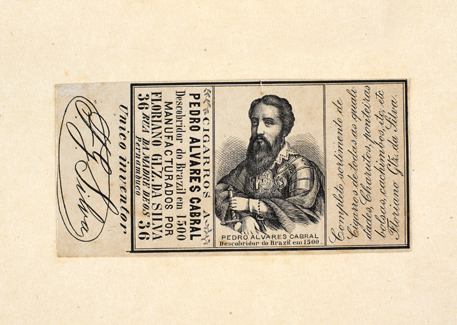 CIGARROS A
PEDRO ALVARES CABRAL
Descobridor do Brazil em 1500
MANUFACTURADOS POR
FLORIANO GLZ DA SILVA
36 RUA DA MADRE DEOS 36
Pernambuco
Unico inventor
Silva
PEDRO ALVARES CABRAL
Descobridor do Brazil em 1500.
Completo sortimento de
Cigarros de todas as quali
dades, Charutos, ponteiras
bolsas, cachimbos, etc. etc
Floriano Glz. da Silva